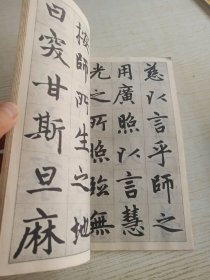 慈以言乎師之
用廣照以言慧
光之所照臨無
按師所生之地
曰突甘斯旦麻